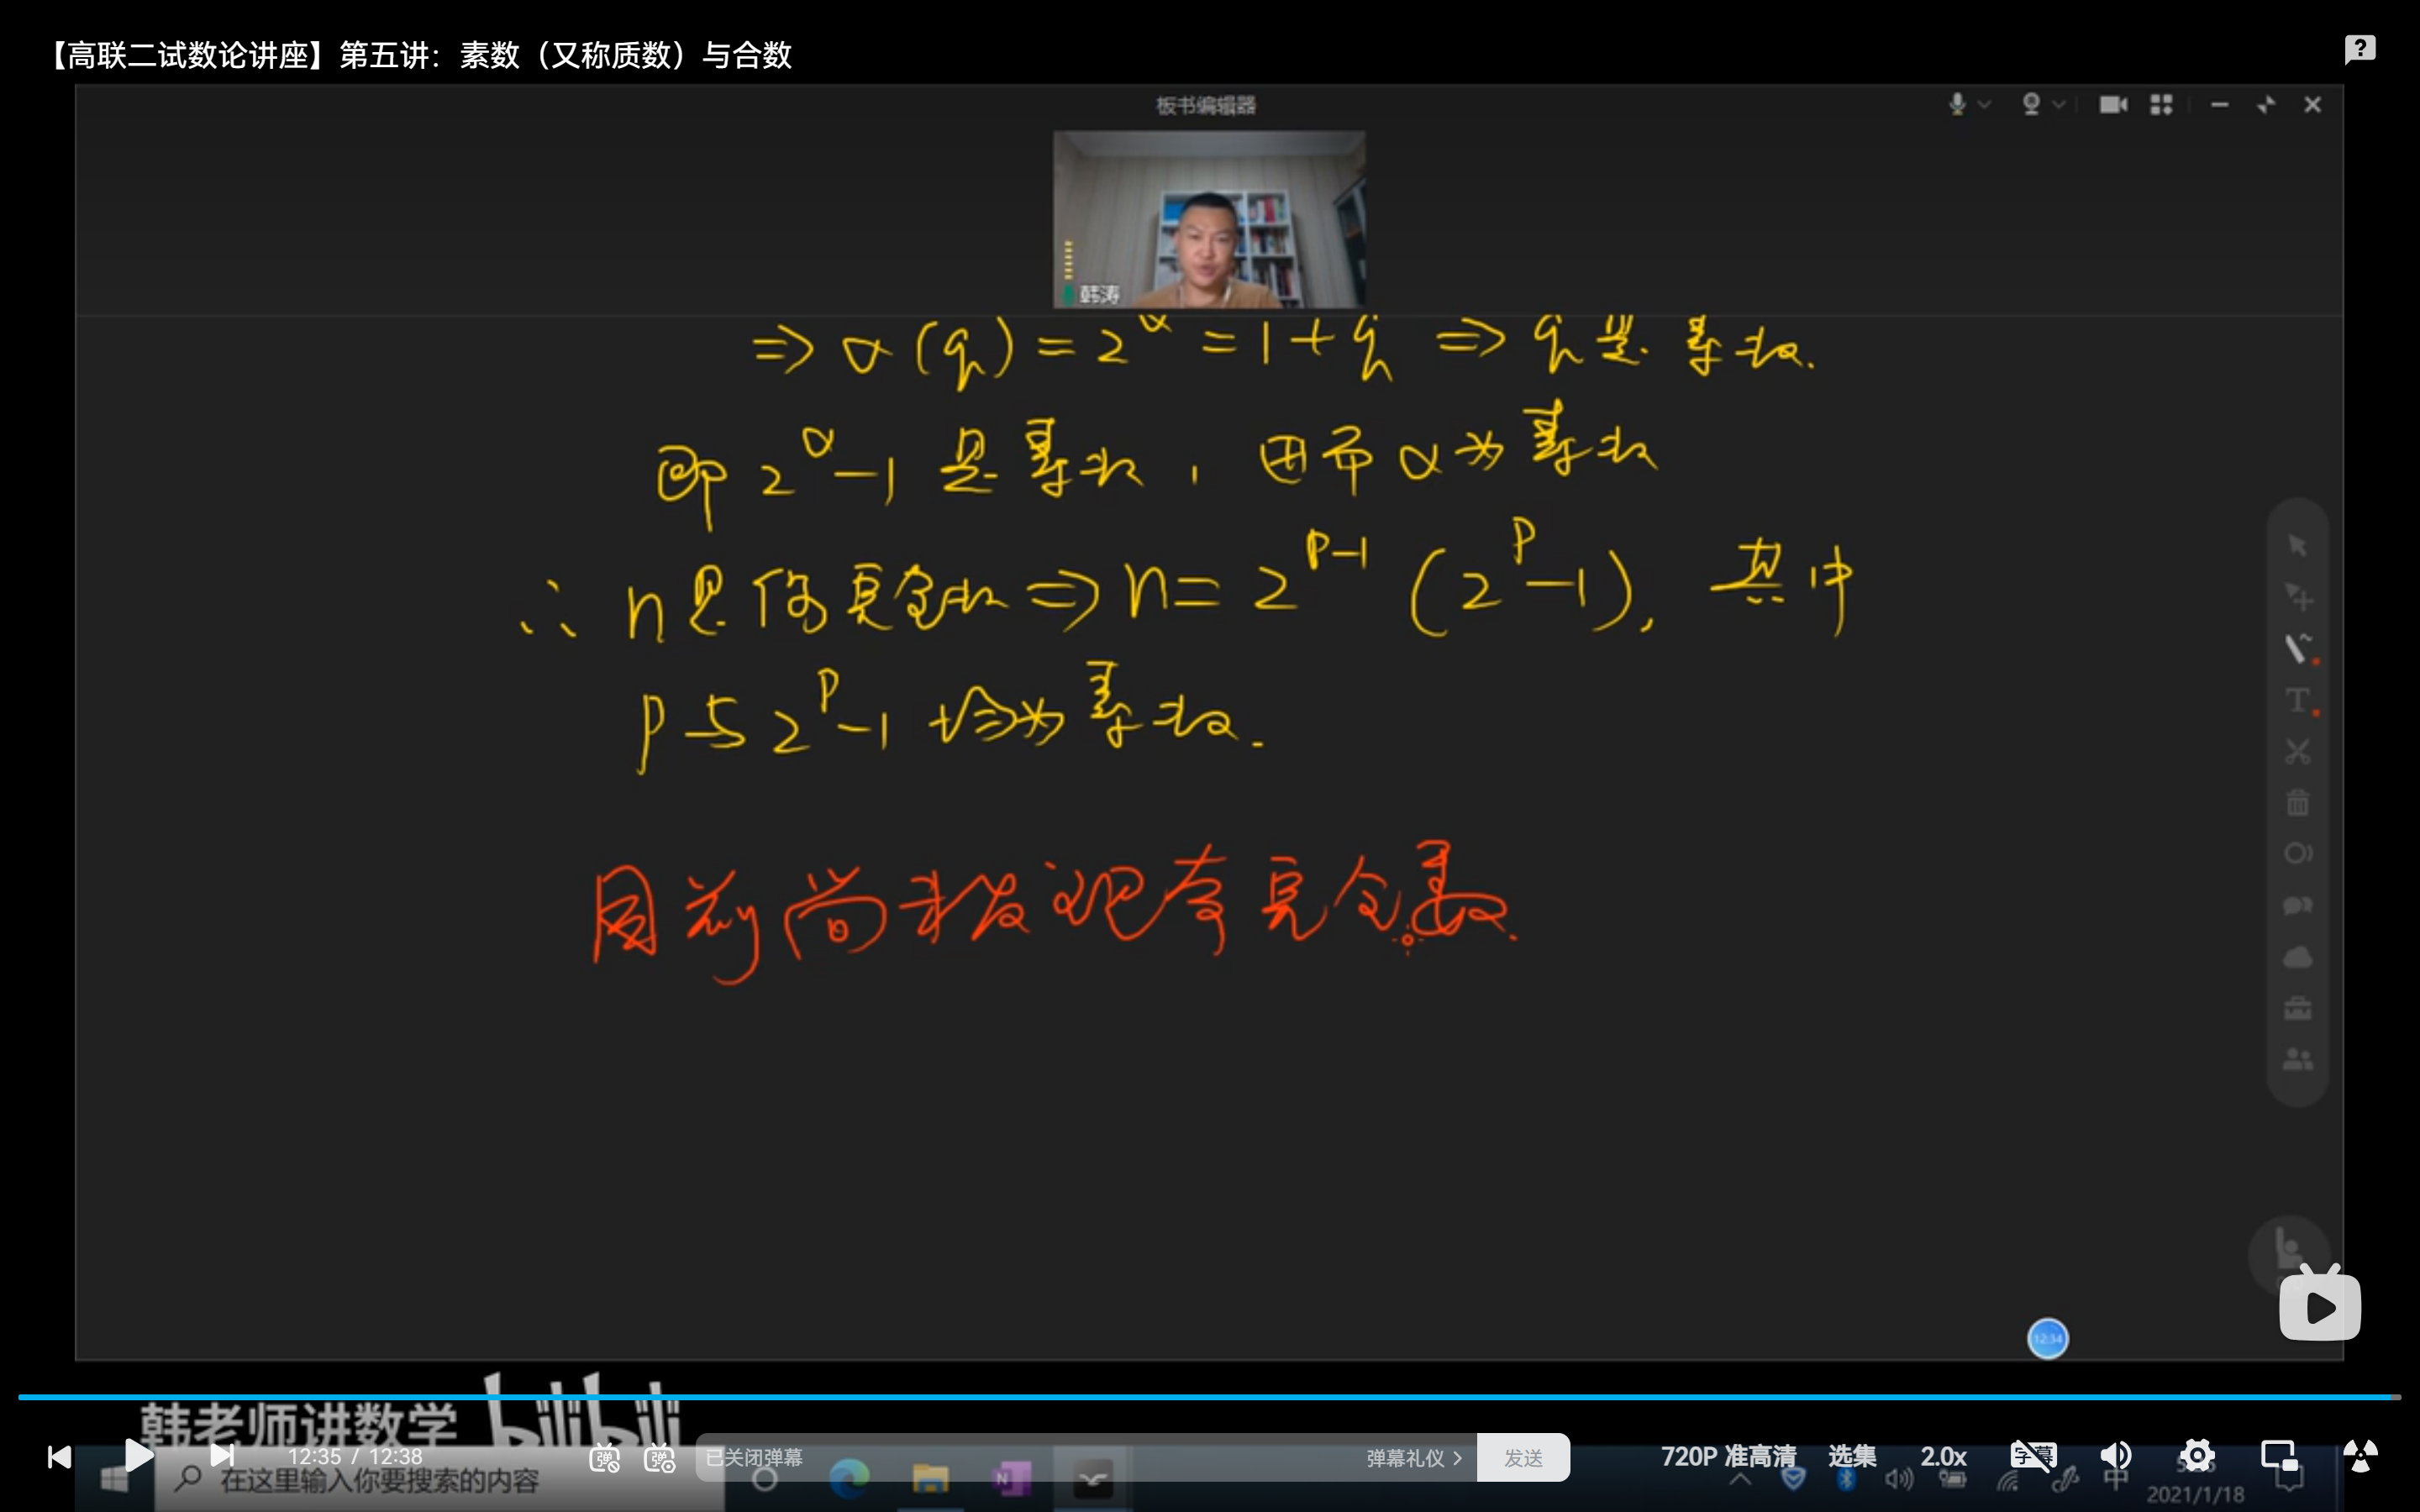 【高联二试数论讲座】第五讲：素数（又称质数）与合数
板书编辑器
韩涛
⇒ σ(q) = 2^α = 1 + q ⇒ q 是素数.
即 2^α − 1 是素数, 因而 α 为素数
∴ n 是偶完全数 ⇒ n = 2^{p−1} (2^p − 1), 其中
p 与 2^p − 1 均为素数.
目前尚未发现奇完全数.
12:34
韩老师讲数学 bilibili
12:35 / 12:38
已关闭弹幕
弹幕礼仪 >
发送
720P 准高清
选集
2.0x
在这里输入你要搜索的内容
中
2021/1/18